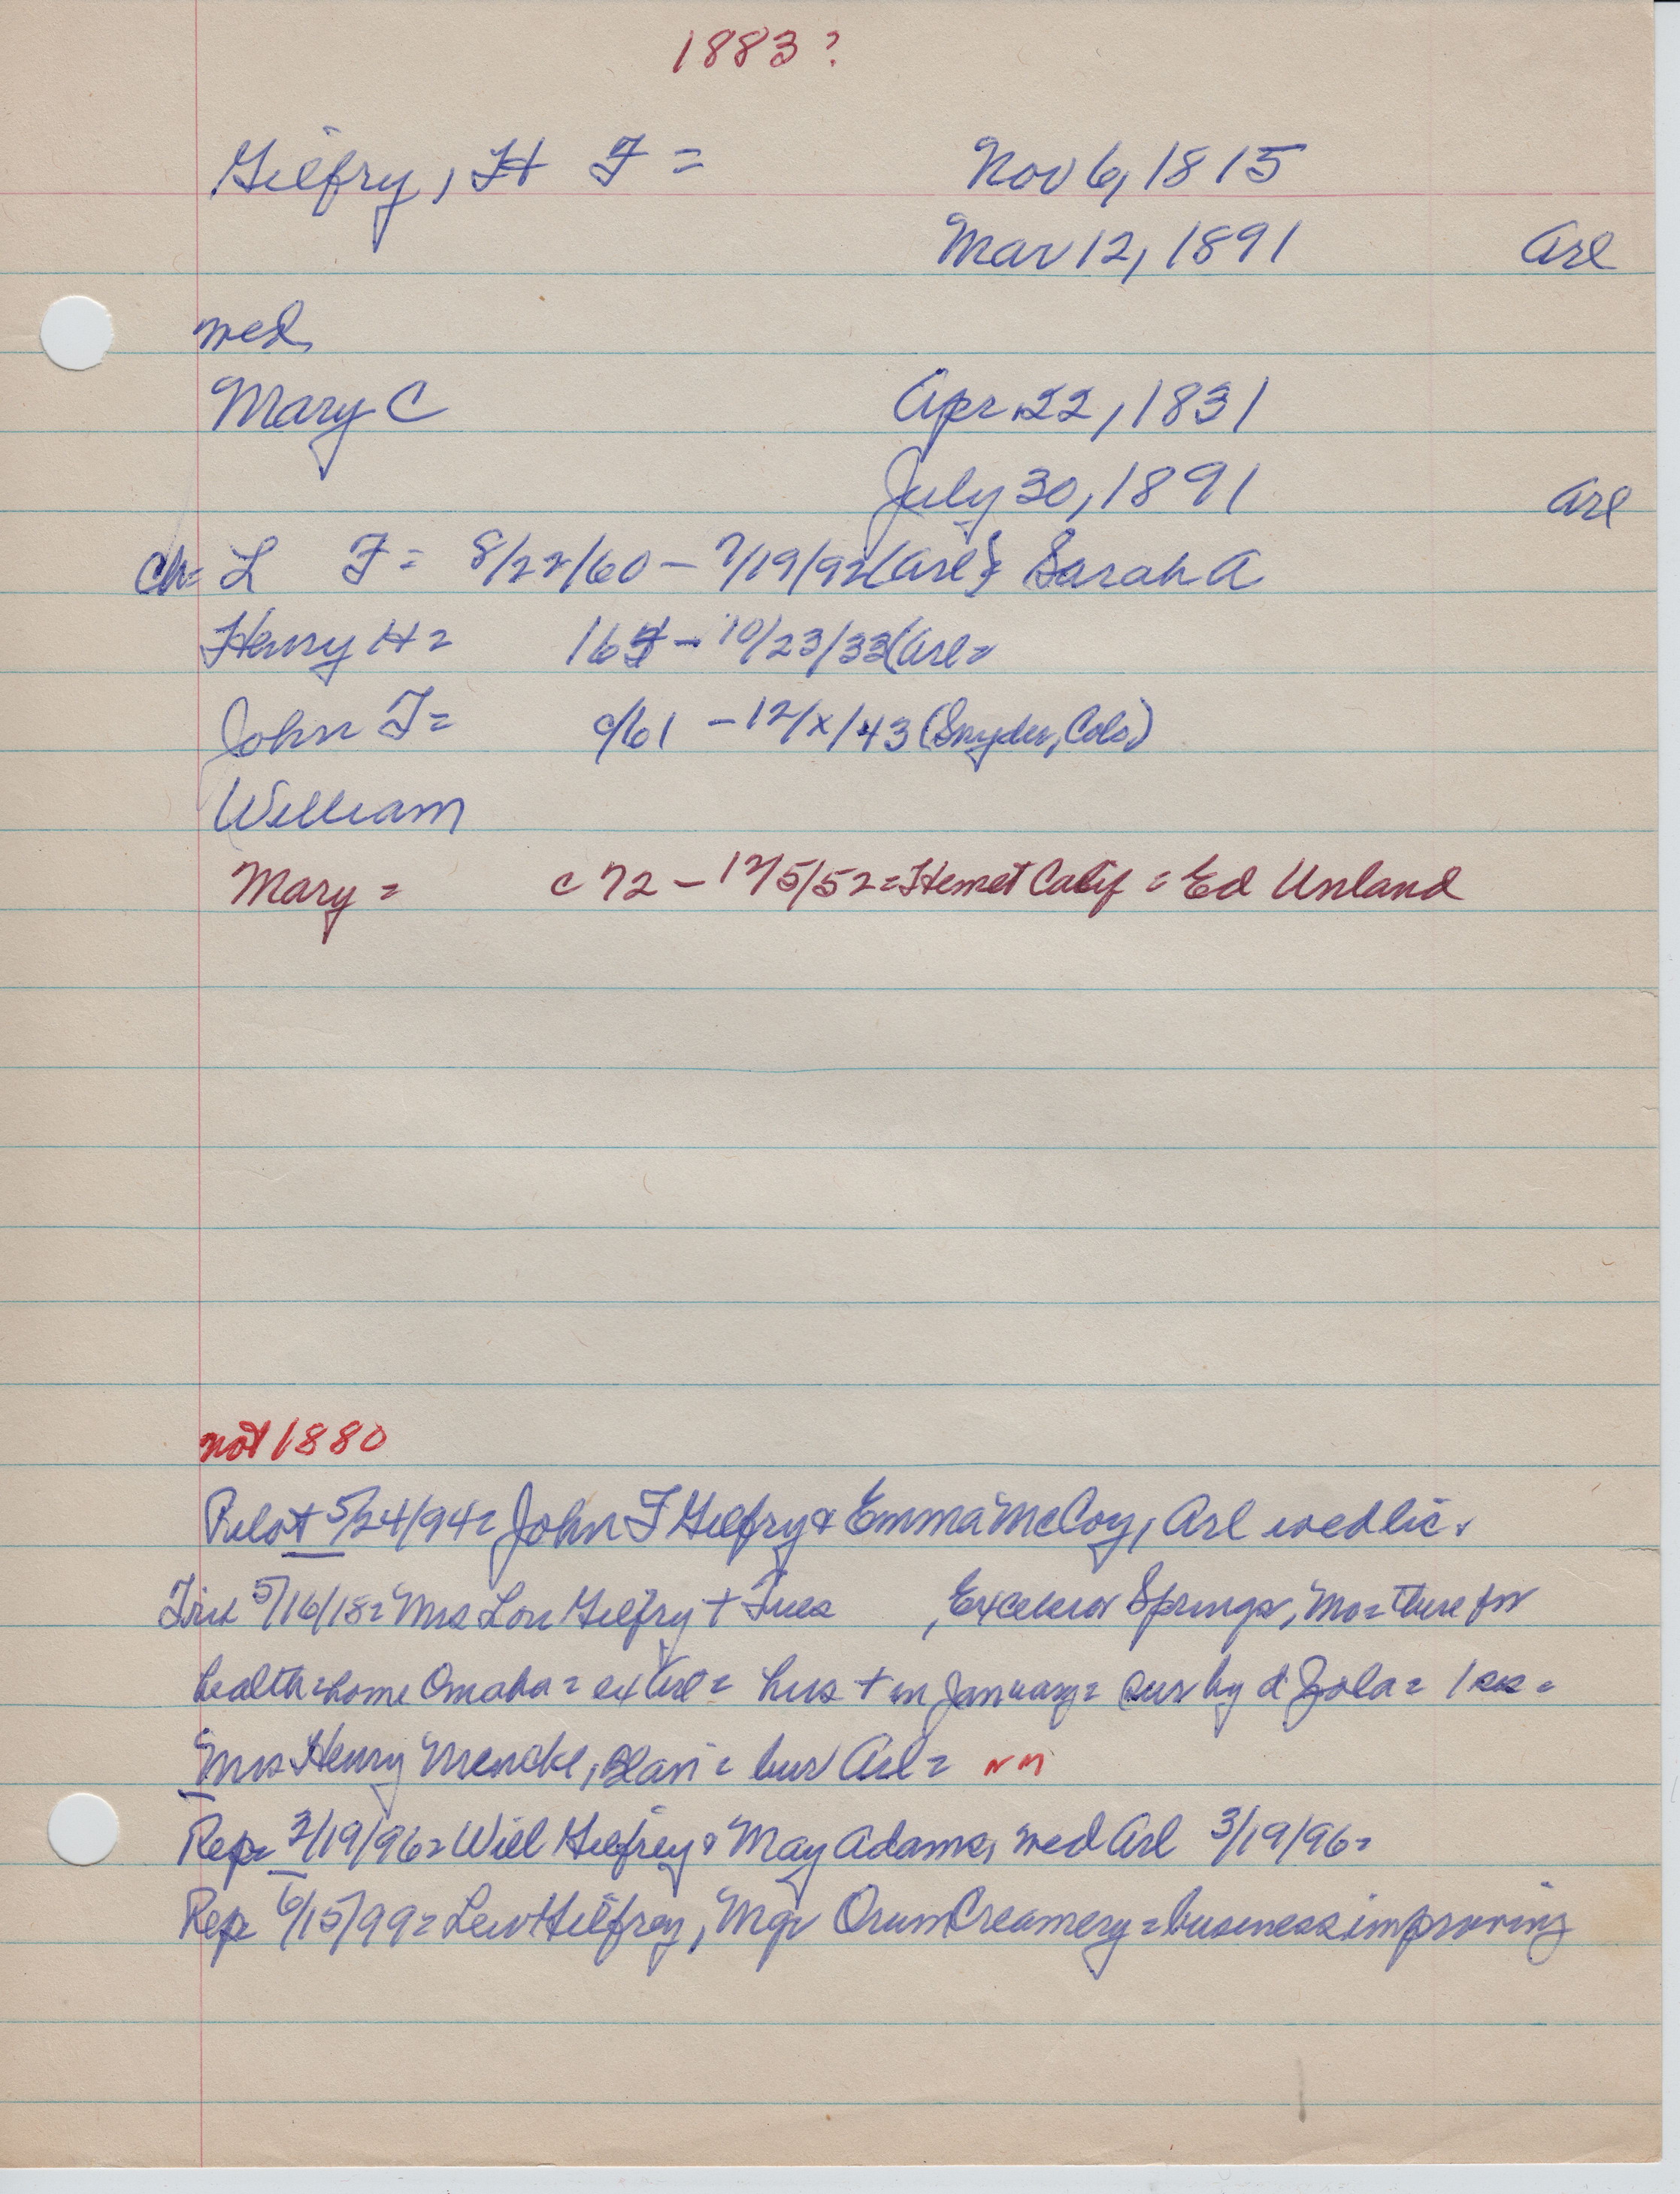 1883?
Gilfry, H F = Nov 6, 1815
Mar 12, 1891 Arl
med
Mary C Apr. 22, 1831
July 30, 1891 Arl
Ch= L F = 8/22/60 - 7/19/92 (Arl) Sarah A
Henry H = - 10/23/33 (Arl=
John F = c/61 - 12/x/43 (Snyder, Colo.)
William
Mary = c 72 - 12/5/52 = Hemet Calif = Ed Unland
not 1880
Pilot 5/24/94 = John F Gilfry & Emma McCoy, Arl wed lic.
5/16/18 = Mrs Lou Gilfry + Tues , Excelsior Springs, Mo = there for
health = home Omaha = ex Arl = hus + in January = sur by d Zola = 1 ss =
Mrs Henry Mencke, Blair = bur Arl = nn
Rep = 3/19/96 = Will Gilfrey & May Adams, med Arl 3/19/96 =
Rep 6/15/99 = Lew Gilfrey, Mgr Orum Creamery = business improving